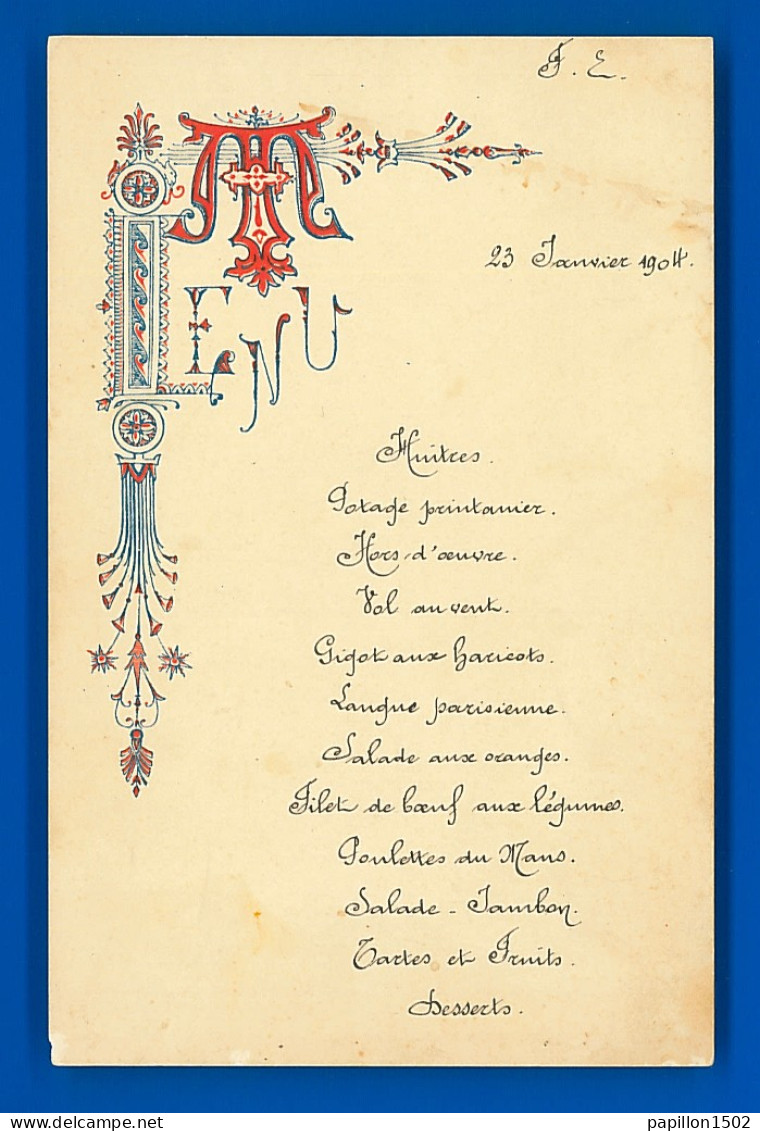 F. E.
MENU
23 Janvier 1904.
Huitres.
Potage printanier.
Hors-d'œuvre.
Vol au vent.
Gigot aux haricots.
Langue parisienne.
Salade aux oranges.
Filet de bœuf aux légumes.
Poulettes du Mans.
Salade - Jambon.
Tartes et Fruits.
Desserts.
papillon1502